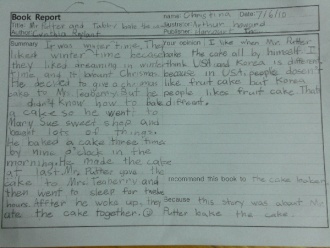 Book Report
Name: Date: 7/6/10
Title: Mr Putter and Tabby bake the cake
Illustrator: Arthur Howard
Author: Cynthia Rylant
Publisher: Harcourt Inc
Summary It was winter time. They
liked winter time because
they liked dreaming in winter
time, and it almost Christmas
He decided to give a christmas
cake to Mr. Teaberry. But he
didn't know how to bake
a cake so he went to
Mary Sue sweet shop and
bought lots of things.
He baked a cake three time
by nine o'clock in the
morning. He made the cake
at last. Mrs. Putter give the
cake to Mrs. Teaberry and
then went to sleep for three
hours. After he woke up, they
ate the cake together.
Your reason I like when Mr. Putter
bake the cake all by himself. I
think USA and Korea is different
because in USA people doesn't
like fruit cake but Korea
people likes fruit cake. That's
different.
I recommend this book to The cake baker
Because this story was about Mr.
Putter bake the cake.